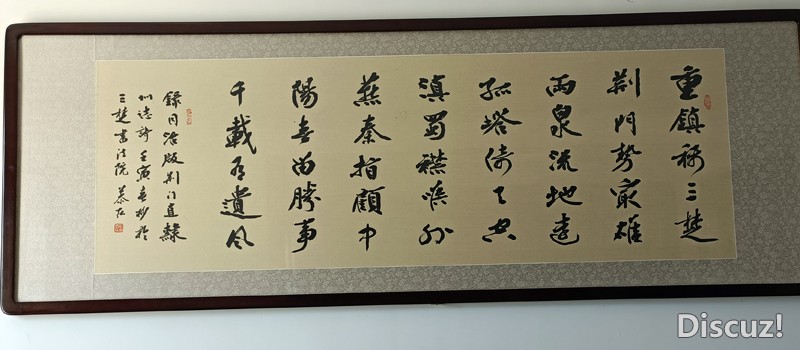 重鎮稱三楚
荆門勢最雄
兩泉流地遠
孤塔倚天空
滇蜀襟喉外
燕秦指顧中
陽春留勝事
千載有遺風
錄同治版荆门直隸
州志詩壬寅春抄於
三楚書法院
Discuz!